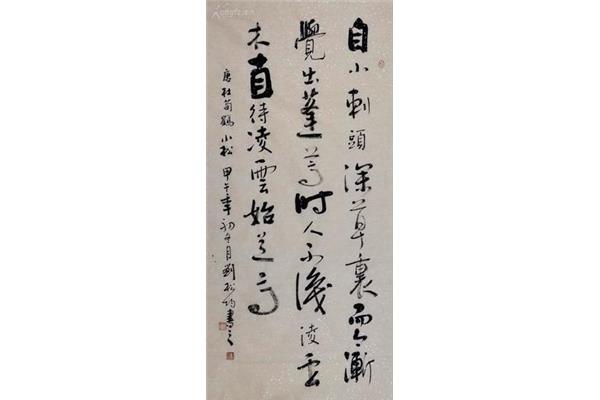 自小刺頭深草裏而今漸
覺出蓬蒿時人不識凌雲
木直待凌雲始道高
唐杜荀鶴小松 甲午年初冬月劉松書之